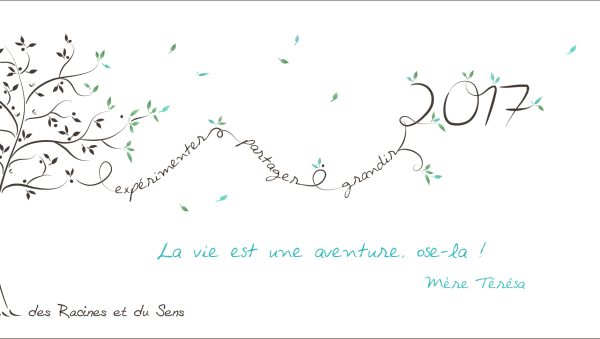 expérimenter partager grandir 2017
La vie est une aventure, ose-la !
Mère Térésa
des Racines et du Sens